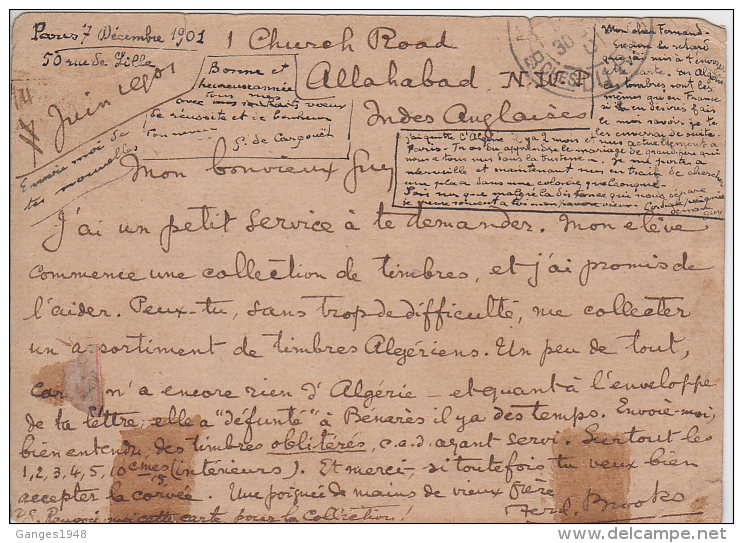 Paris 7 Décembre 1901
50 rue de Lille
1 Church Road
Allahabad N.W.P
Indes Anglaises
Juin 1901
Envoie moi de
tes nouvelles
Bonne et
heureuse année
avec nos voeux
de réussite et de bonheur
G. de Cargouët
Mon cher Fernand
excuse le retard
que j'ai mis à t'envoyer
carte. en Algérie
les timbres sont les
mêmes qu'en France
si tu en désires fais
le moi savoir je te
les enverrai de suite.
j'ai quitté l'Algérie il y a 2 mois et suis actuellement à
Paris. Tu as dû apprendre le mariage de grand qui
nous a tous mis dans la tristesse. Je me porte à
merveille et maintenant suis en train de chercher
une place dans une colonie quelconque.
malgré la distance qui nous sépare
je pense souvent à toi mon pauvre vieux. Cordiale poignée
de main
Guy
Mon bon vieux Guy
J'ai un petit service à te demander. Mon elève
commence une collection de timbres, et j'ai promis de
l'aider. Peux-tu, sans trop de difficulté, me collecter
un assortiment de timbres Algériens. Un peu de tout,
car n'a encore rien d'Algérie – et quant à l'enveloppe
de ta lettre, elle a "défunté" à Bénarès il y a des temps. Envoie-moi,
bien entendu, des timbres oblitérés, c.a.d. ayant servi. Surtout les
1, 2, 3, 4, 5, 10 cmes (intérieurs). Et merci, si toutefois tu veux bien
accepter la corvée. Une poignée de mains de vieux frère
Ferd. Brooks
P.S. Renvoie moi cette carte pour la Collection!
Ganges1948
delcampe.net